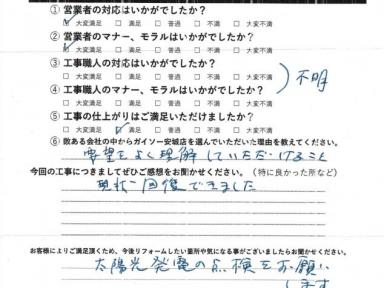 ① 営業者の対応はいかがでしたか？
☑ 大変満足 □ 満足 □ 普通 □ 不満 □ 大変不満
② 営業者のマナー、モラルはいかがでしたか？
☑ 大変満足 □ 満足 □ 普通 □ 不満 □ 大変不満
③ 工事職人の対応はいかがでしたか？
□ 大変満足 □ 満足 □ 普通 □ 不満 □ 大変不満
不明
④ 工事職人のマナー、モラルはいかがでしたか？
□ 大変満足 □ 満足 □ 普通 □ 不満 □ 大変不満
⑤ 工事の仕上がりはご満足いただけましたか？
□ 大変満足 ☑ 満足 □ 普通 □ 不満 □ 大変不満
⑥ 数ある会社の中からガイソー安城店を選んでいただいた理由を教えてください。
要望をよく理解していただけること
今回の工事につきましてぜひご感想をお聞かせください。（特に良かった所など）
現状回復できました
お客様によりご満足頂くため、今後リフォームしたい箇所や気になる事がございましたらお聞かせください。
太陽光発電の点検をお願い
します